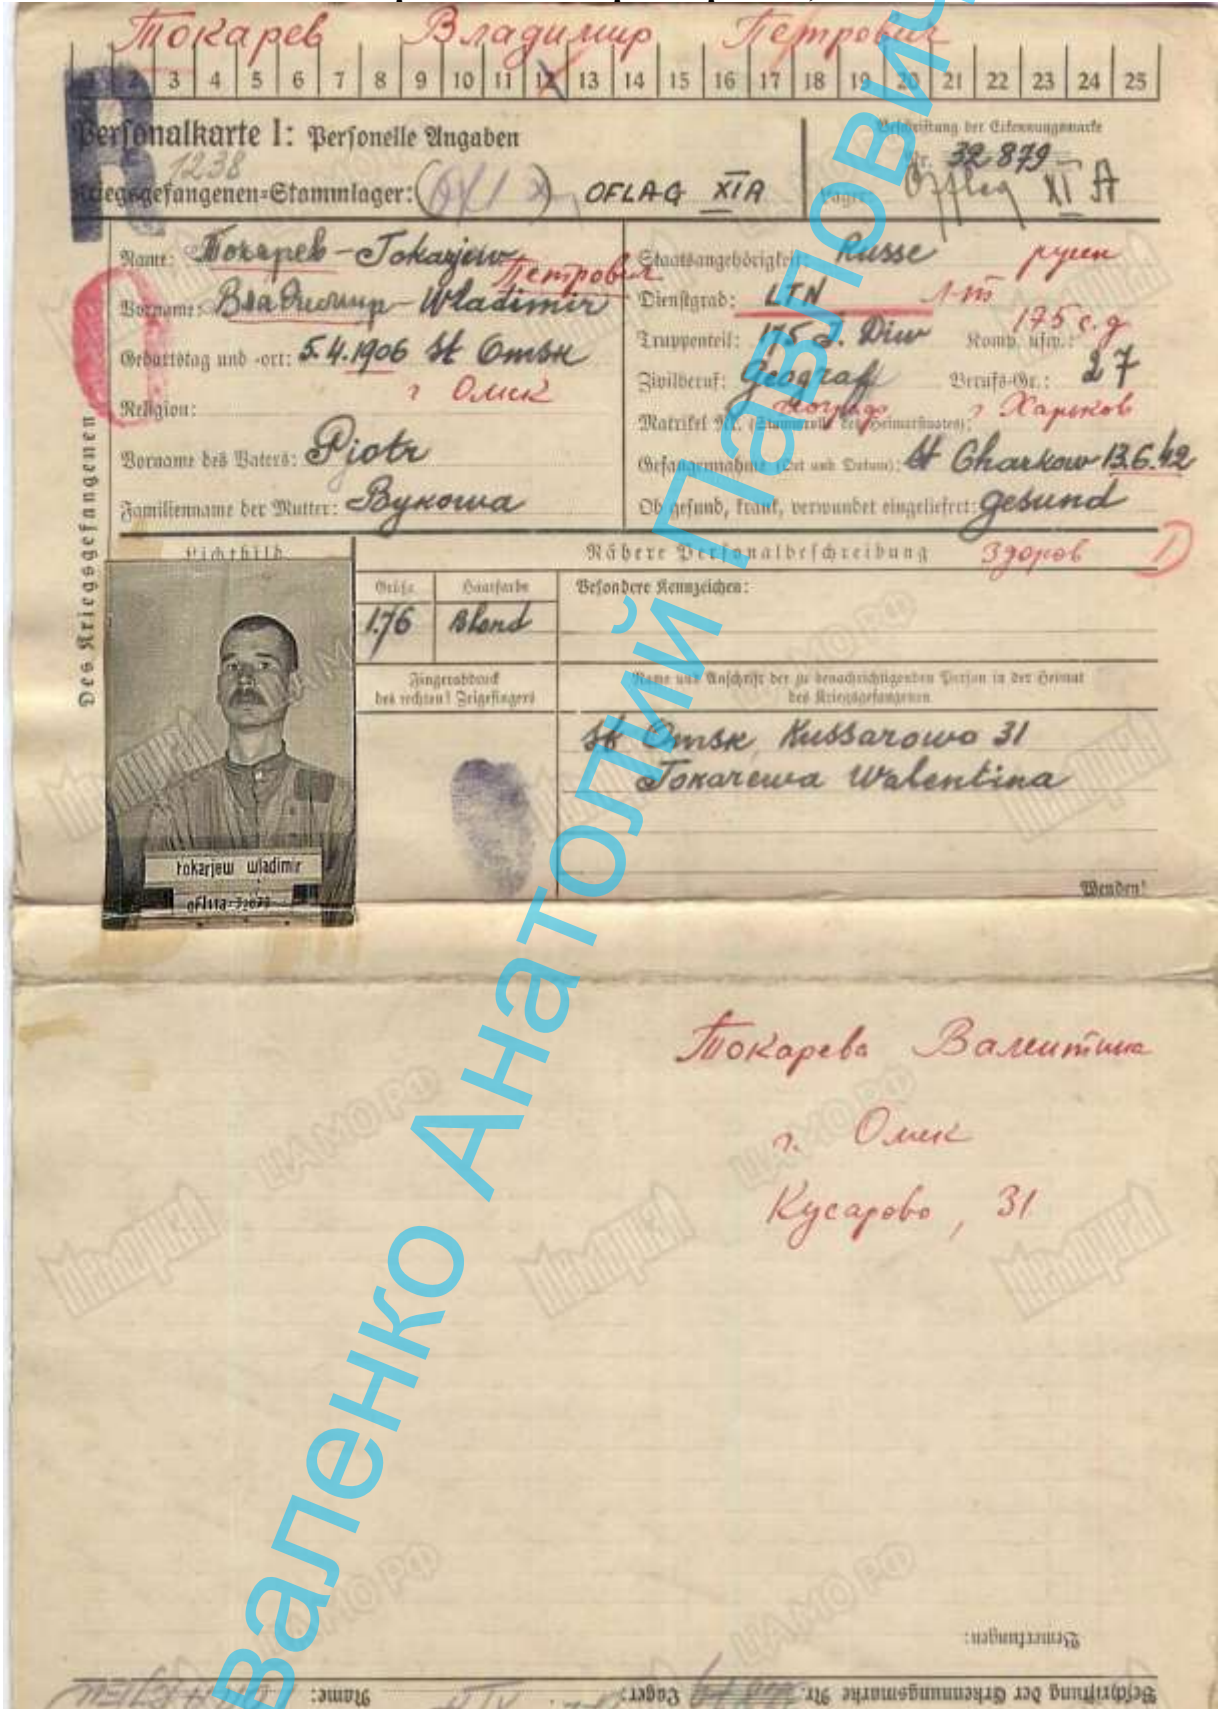 Токарев Владимир Петрович
2 3 4 5 6 7 8 9 10 11 12 13 14 15 16 17 18 19 20 21 22 23 24 25
Personalkarte I: Personelle Angaben
Beschriftung der Erkennungsmarke
1238
Nr. 32879
Kriegsgefangenen=Stammlager: OFLAG XIA
Lager: Offlag XI A
Name: Токарев - Tokarjew
Петрович
Vorname: Владимир - Wladimir
Geburtstag und -ort: 5.4.1906 St Omsk
г Омск
Religion:
Vorname des Vaters: Pjotr
Familienname der Mutter: Bykowa
Staatsangehörigkeit: Russe русск
Dienstgrad: LTN Л-т
175 с.д
Truppenteil: 175 J. Diw Komp. usw.:
Zivilberuf: Geograf Berufs-Gr.: 27
г Харьков
Matrikel Nr. (Stammrolle des Heimatstaates):
Gefangennahme (Ort und Datum): St Charkow 13.6.42
Ob gesund, krank, verwundet eingeliefert: gesund
Des Kriegsgefangenen
Lichtbild
Nähere Personalbeschreibung
здоров
Größe Haarfarbe Besondere Kennzeichen:
1.76 Blond
Fingerabdruck
des rechten! Zeigefingers
Name und Anschrift der zu benachrichtigenden Person in der Heimat
des Kriegsgefangenen
St Omsk, Kussarowo 31
Tokarewa Walentina
tokarjew wladimir
Wenden!
Токарева Валентина
г. Омск
Кусарово, 31
Bemerkungen:
Beschriftung der Erkennungsmarke Nr. Lager: Name:
Валенко Анатолий Павлович
Мемориал
ЦАМО РФ